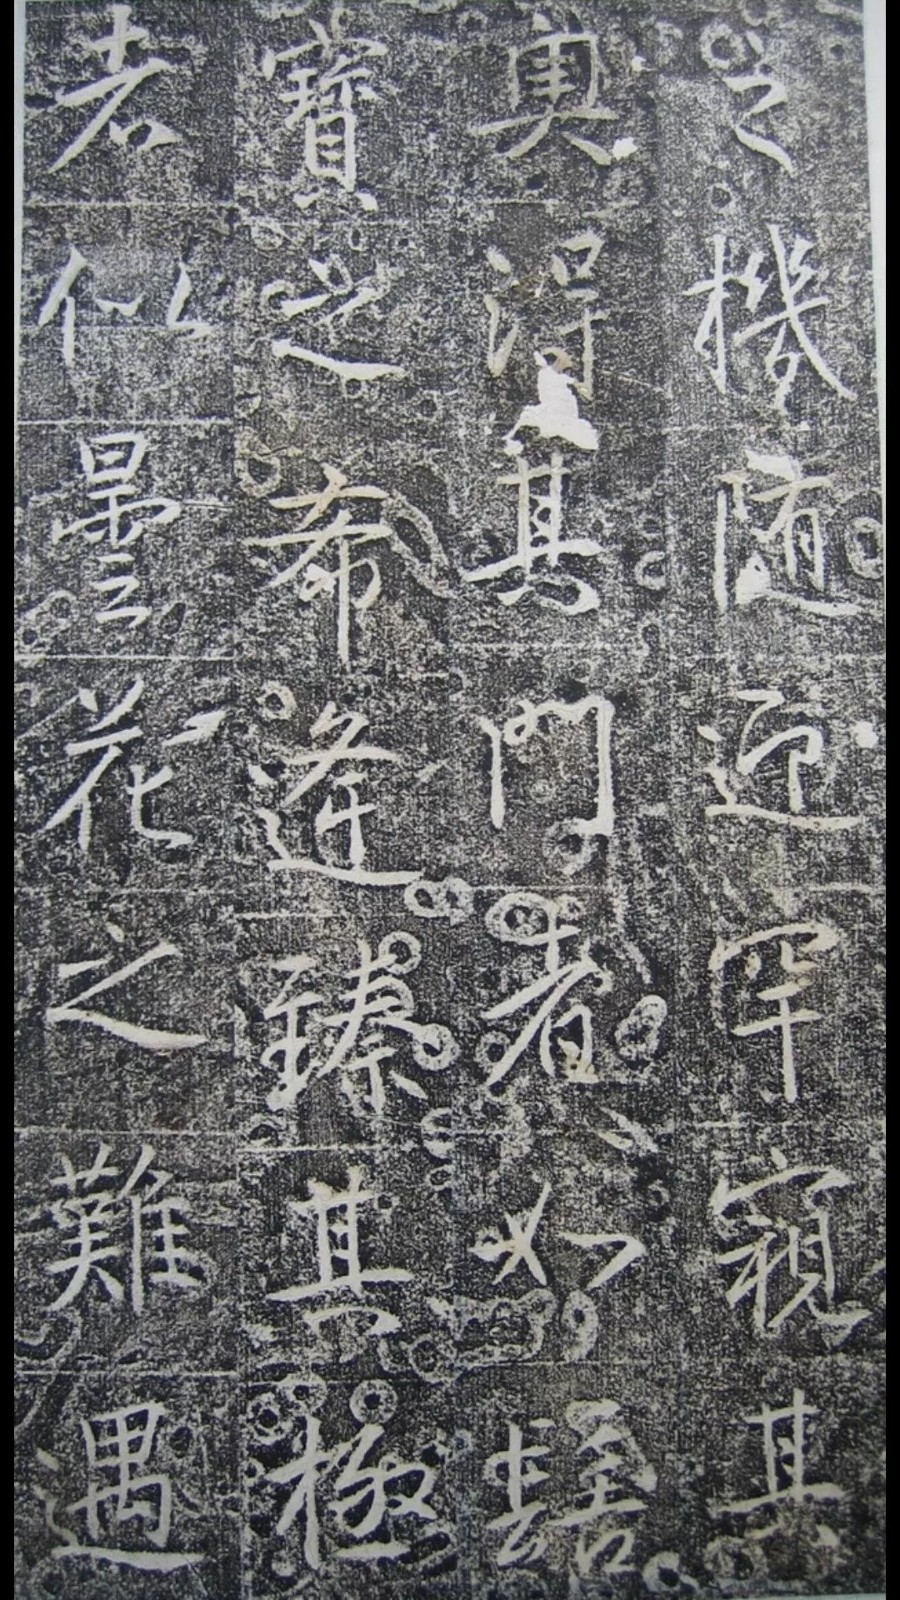 之機随迎罕窺其
奧得其門者如髻
寶之希逢臻其極
者似曇花之難遇